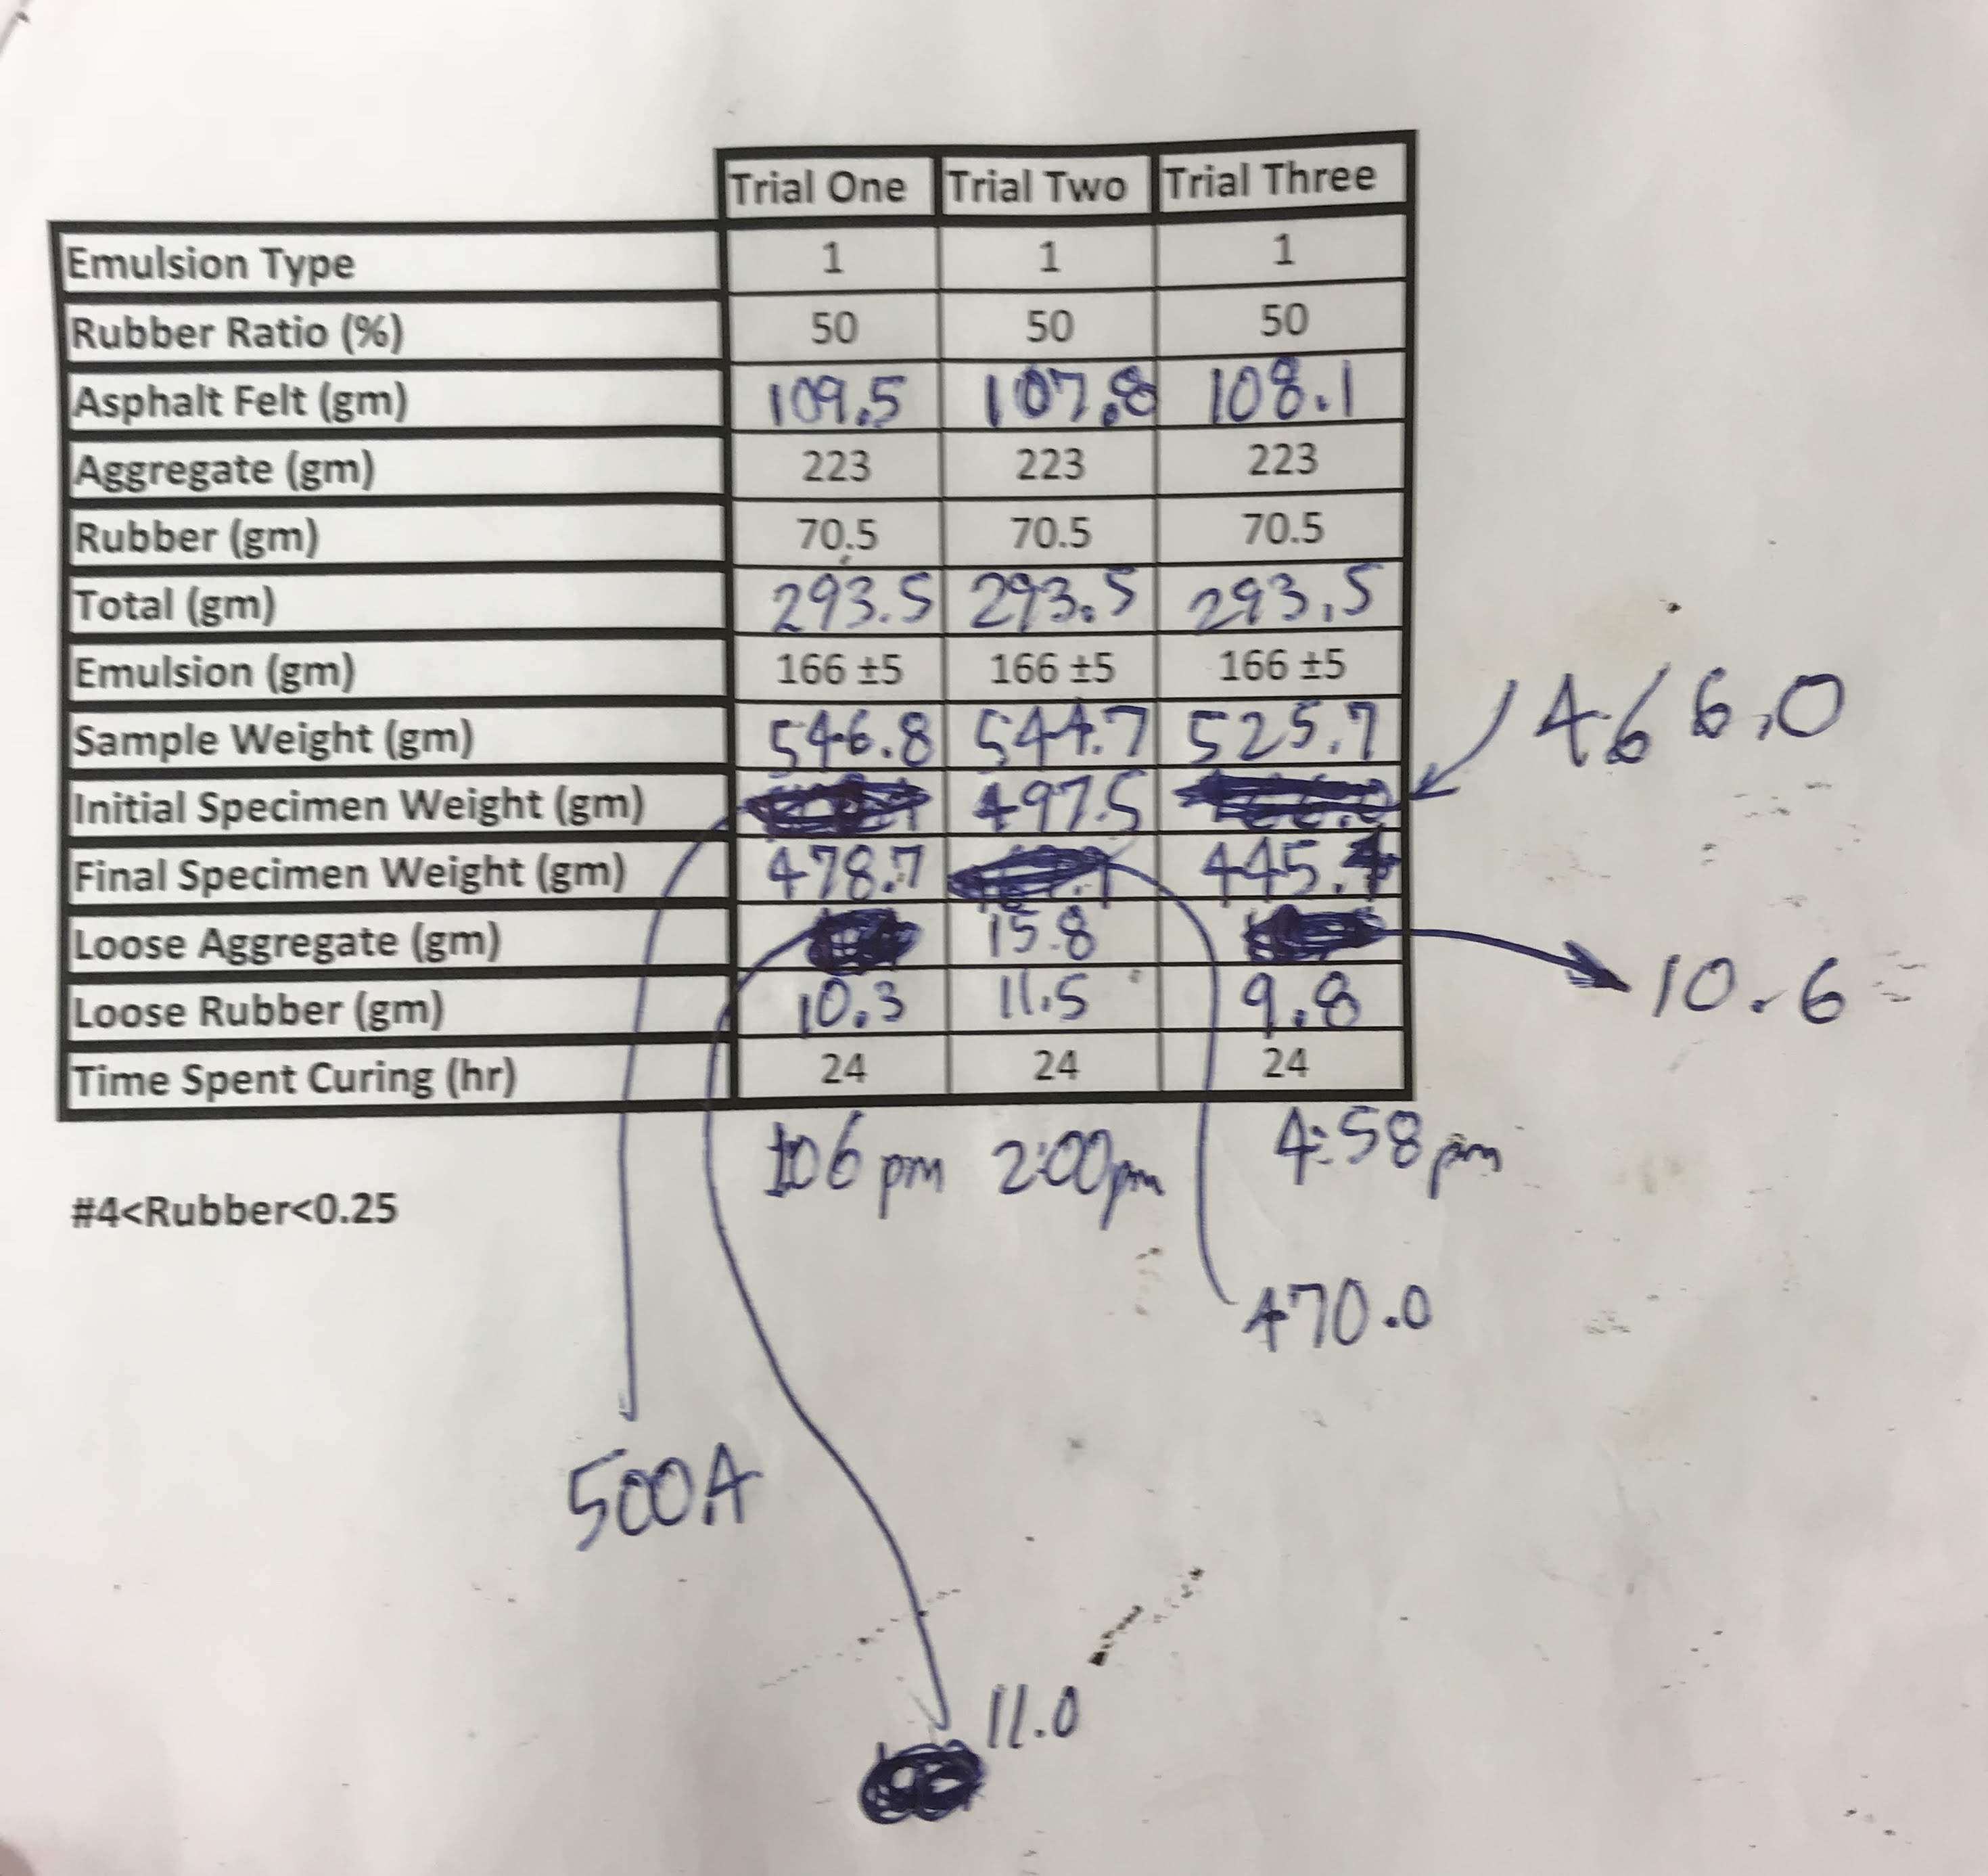 Trial One Trial Two Trial Three
Emulsion Type 1 1 1
Rubber Ratio (%) 50 50 50
Asphalt Felt (gm) 109.5 107.8 108.1
Aggregate (gm) 223 223 223
Rubber (gm) 70.5 70.5 70.5
Total (gm) 293.5 293.5 293.5
Emulsion (gm) 166 ±5 166 ±5 166 ±5
Sample Weight (gm) 546.8 544.7 525.7
466.0
Initial Specimen Weight (gm) 497.5
Final Specimen Weight (gm) 478.7 445.4
Loose Aggregate (gm) 15.8
10.6
Loose Rubber (gm) 10.3 11.5 9.8
Time Spent Curing (hr) 24 24 24
pm 2:00pm 4:58pm
#4<Rubber<0.25
470.0
500.4
11.0